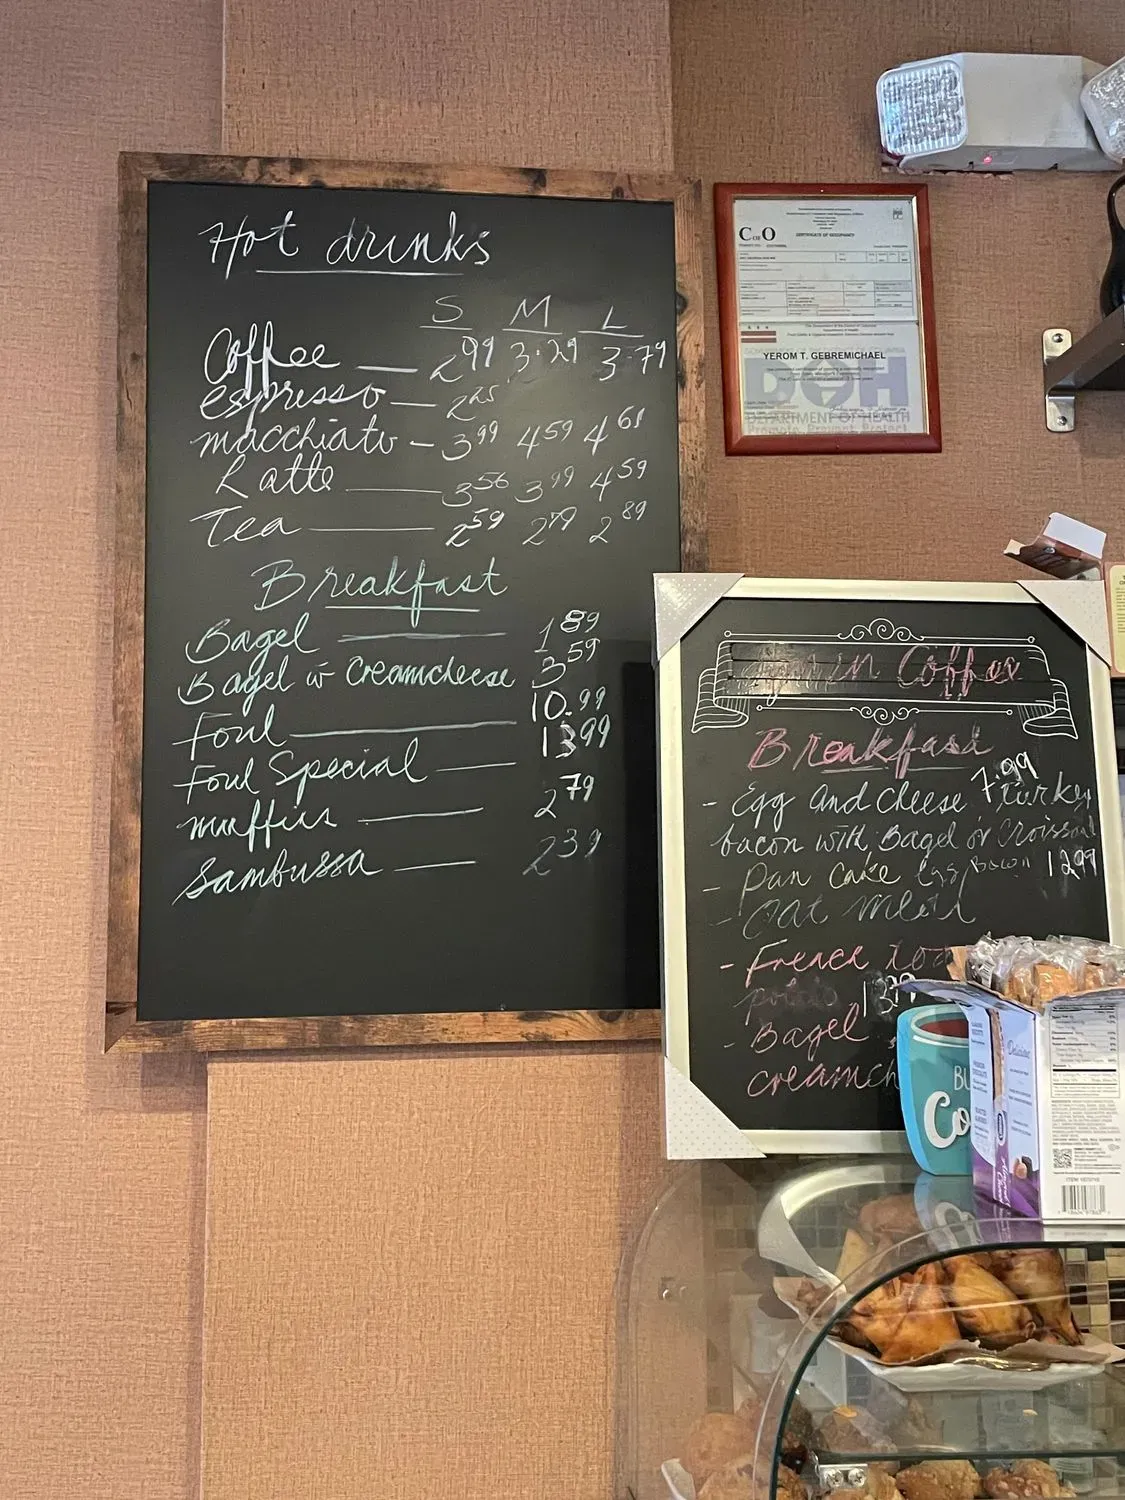 Hot drinks
S M L
Coffee — 2.99 3.29 3.79
espresso — 2.25
macchiato — 3.99 4.59 4.61
Latte — 3.56 3.99 4.59
Tea — 2.59 2.79 2.89
Breakfast
Bagel — 1.89
Bagel w Creamcheese 3.59
Foul — 10.99
Foul Special — 13.99
muffins — 2.79
Sambussa — 2.39
C of O
CERTIFICATE OF OCCUPANCY
YEROM T. GEBREMICHAEL
DOH
DEPARTMENT OF HEALTH
Promote. Prevent. Protect.
in Coffee
Breakfast
- Egg and cheese 7.99 turkey
bacon with Bagel or Croissan
- Pan cake egg Bacon 12.99
- Oat meal
- French to
potato 13.99
- Bagel
creamch
BU
Co
Delicious